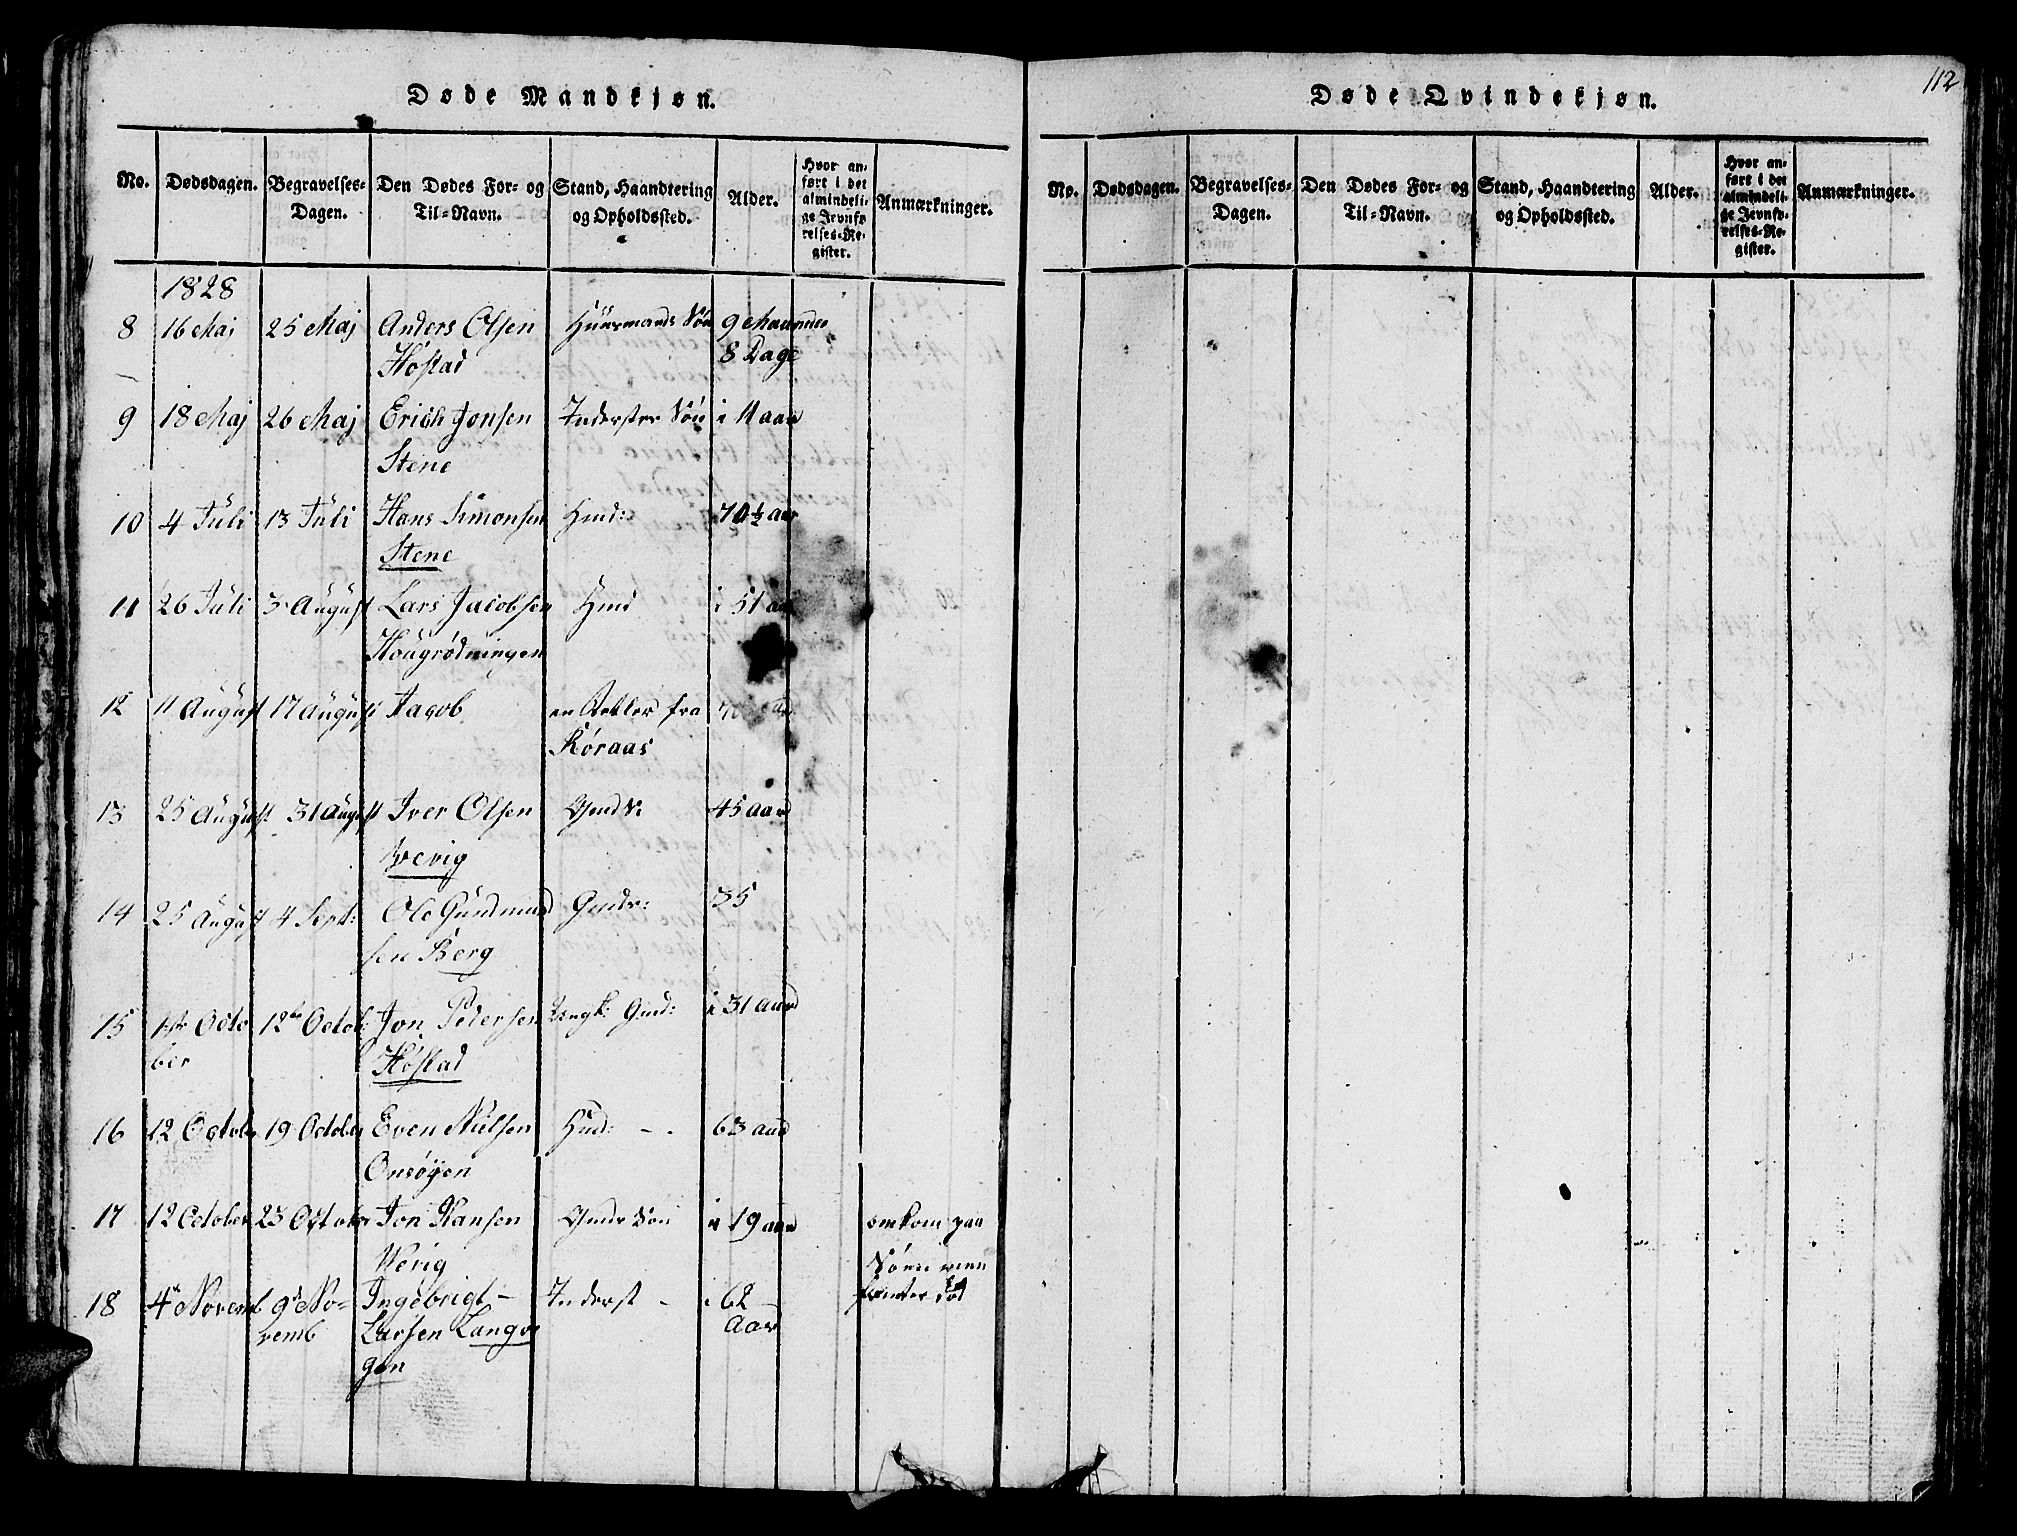 Døde Mandkjøn.
No. Dødsdagen. Begravelses-Dagen. Den Dødes For- og Til-Navn. Stand, Haandtering og Opholdssted. Alder. Hvor anført i det almindelige Jevnførelses-Register. Anmærkninger.
1828
8 16 Maj 25 Maj Anders Olsen Huusmands Søn 9 Maaneder
Høstad 8 Dage
9 18 Maj 26 Maj Erich Jonsen Inderster Søn i 11 aar
Stene
10 4 Juli 13 Juli Hans Simonsen Hmd: 70 ½ aar
Stene
11 26 Juli 3 August Lars Jacobsen Hmd i 51 aar
Hougrødningen
12 11 August 17 August Jacob en Betler fra
Røraas
13 25 August 31 August Iver Olsen 45 aar
14 25 August 4 Sept: Ole Gundmund Gmdr: 35
sen Berg
15 1ste Octo 12te Octob: Jon Pedersen Ungk: Gmd: i 31 aar
ber Høstad
16 12 October 19 October Even Nielsen Hmd: - . 63 aar
Onsøyen
17 12 October 23 October Jon Hansen Gmdr Søn i 19 aar omkom paa
Werig Søen men
18 4de Novemb 9de No- Ingebrigt - Inderst - i 62 funden død
vemb Larsen Langø aar
gen
Døde Qvindekjøn.
112
No. Dødsdagen. Begravelses-Dagen. Den Dødes For- og Til-Navn. Stand, Haandtering og Opholdssted. Alder. Hvor anført i det almindelige Jevnførelses-Register. Anmærkninger.